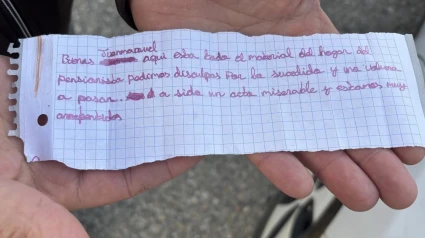 Juanmanuel
Bienes aqui esta todo el material del hogar del
pensionista pedimos disculpas por lo sucedido y no volvera
a pasar. a sido un acto miserable y estamos muy
arrepentidos